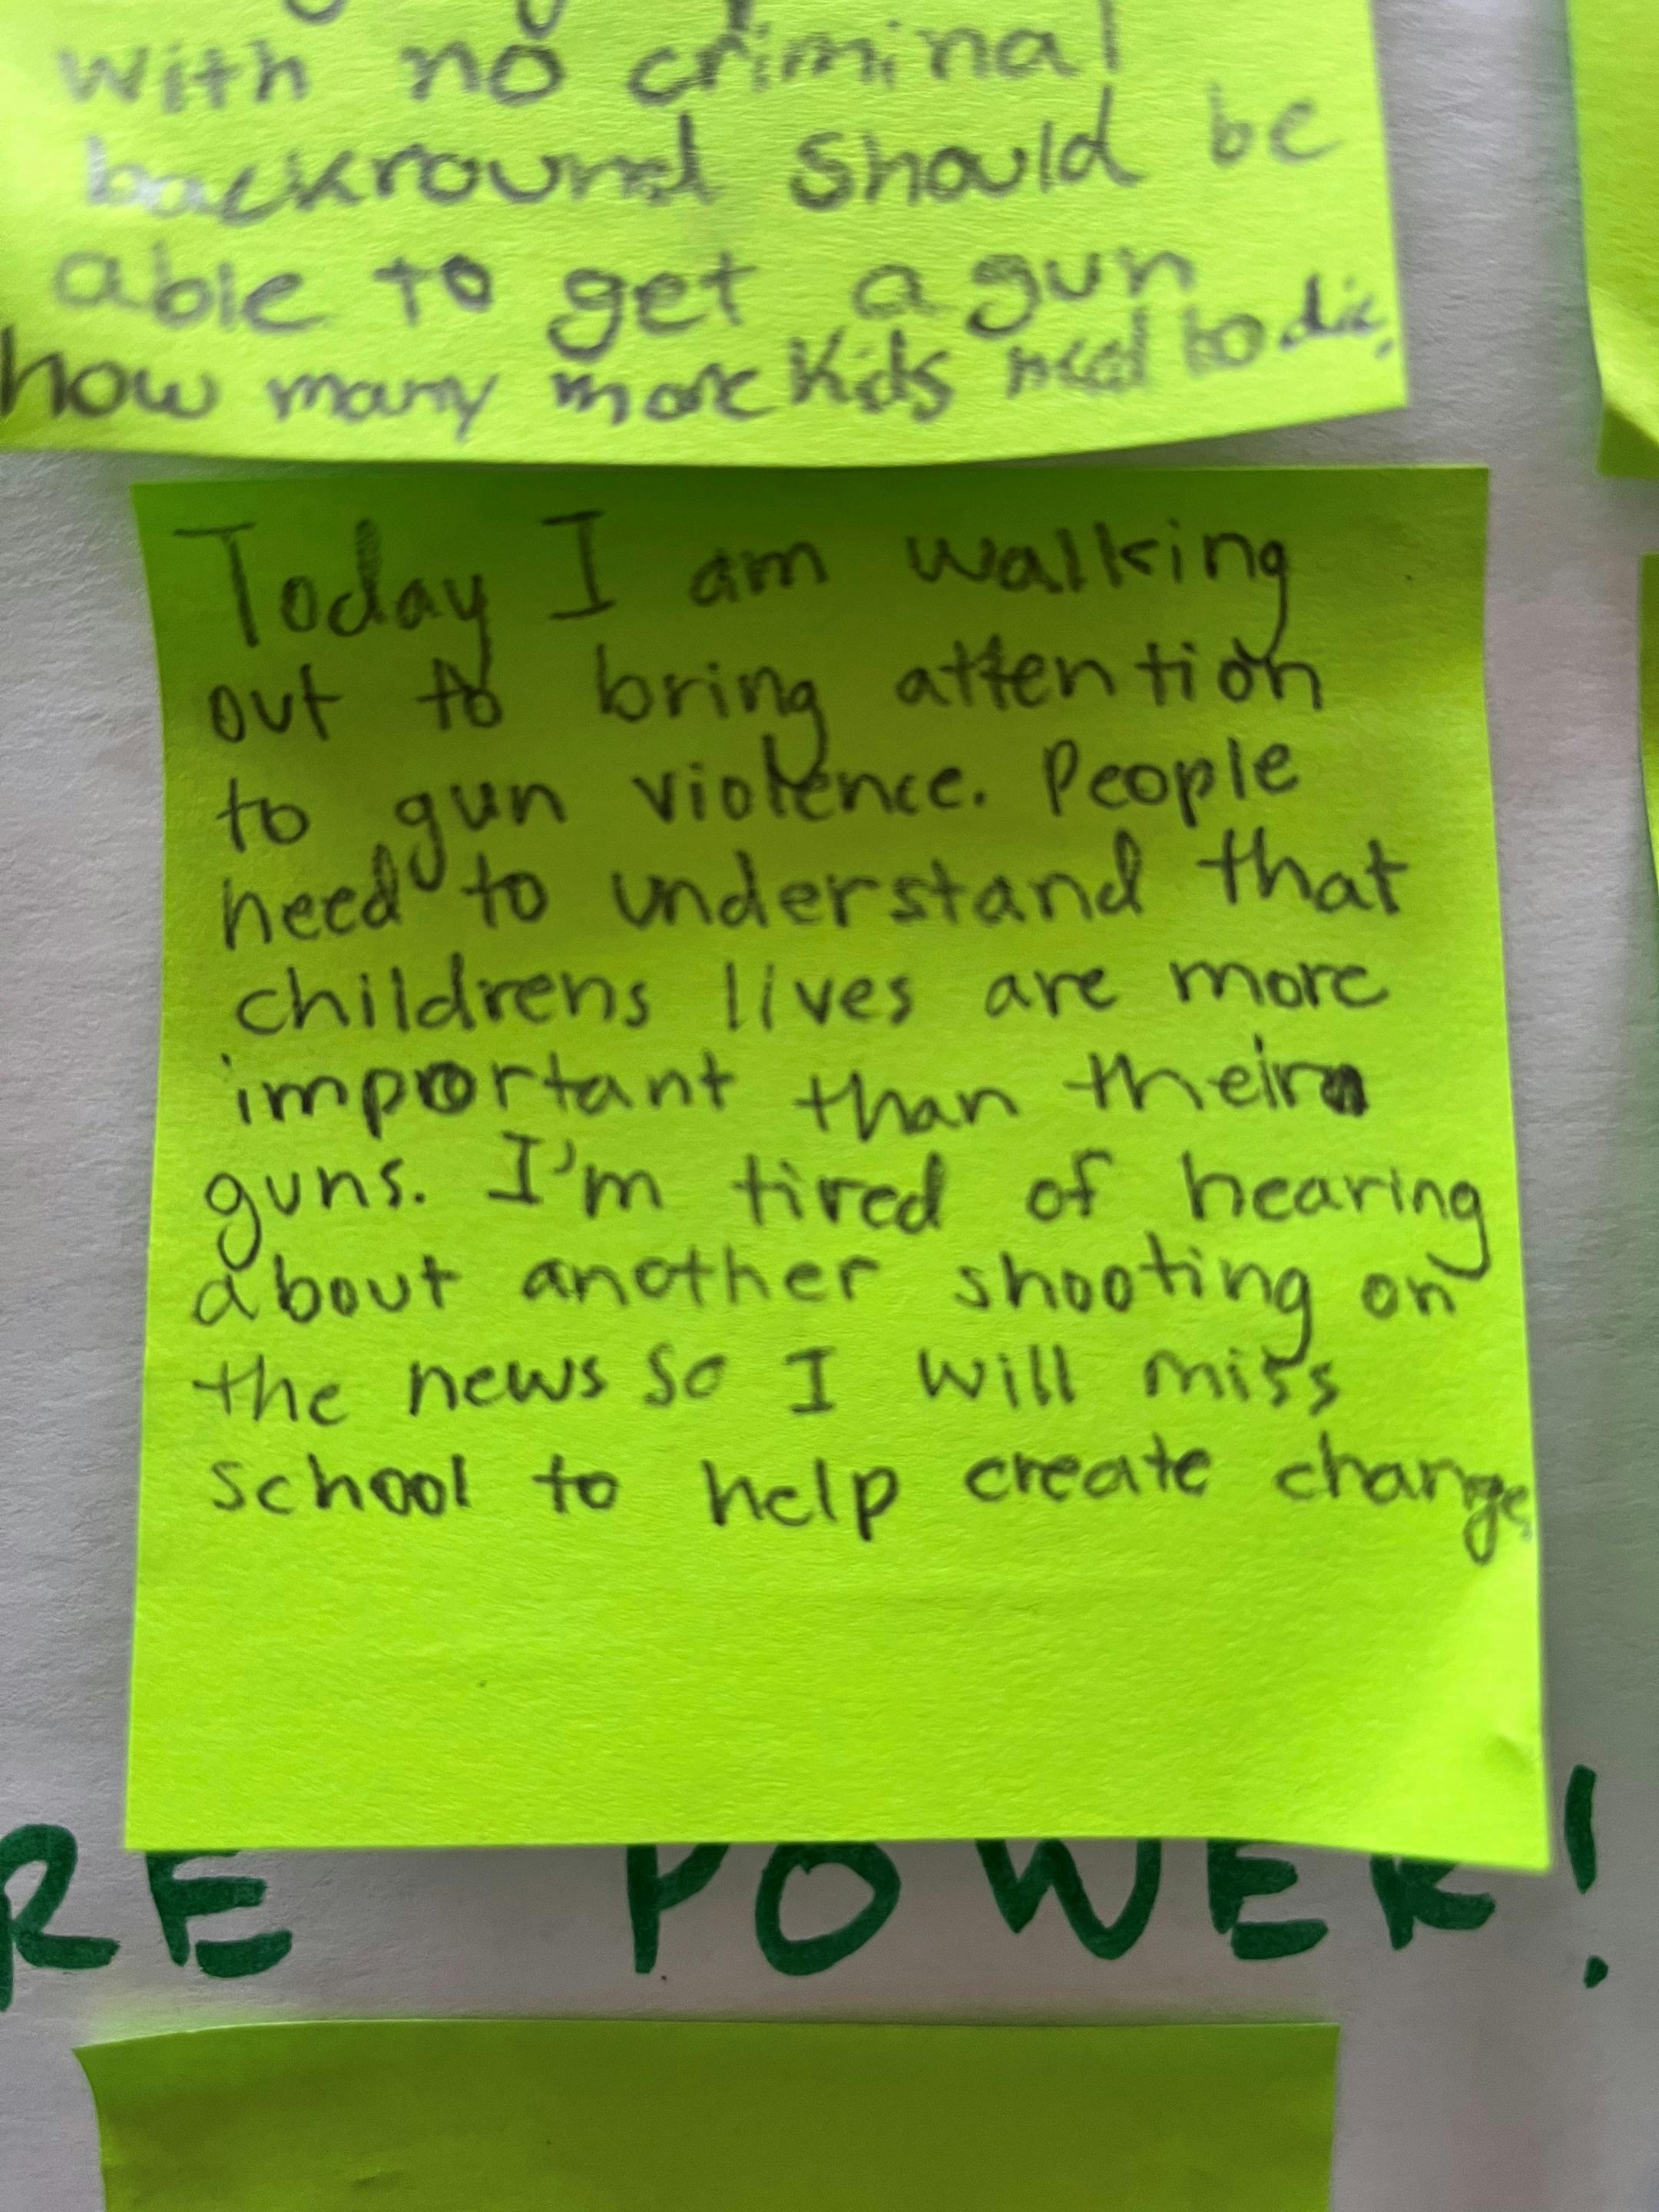 with no criminal
backround should be
able to get a gun
how many more kids need to die.
Today I am walking
out to bring attention
to gun violence. People
need to understand that
childrens lives are more
important than their
guns. I'm tired of hearing
about another shooting on
the news so I will miss
school to help create change.
RE POWER!